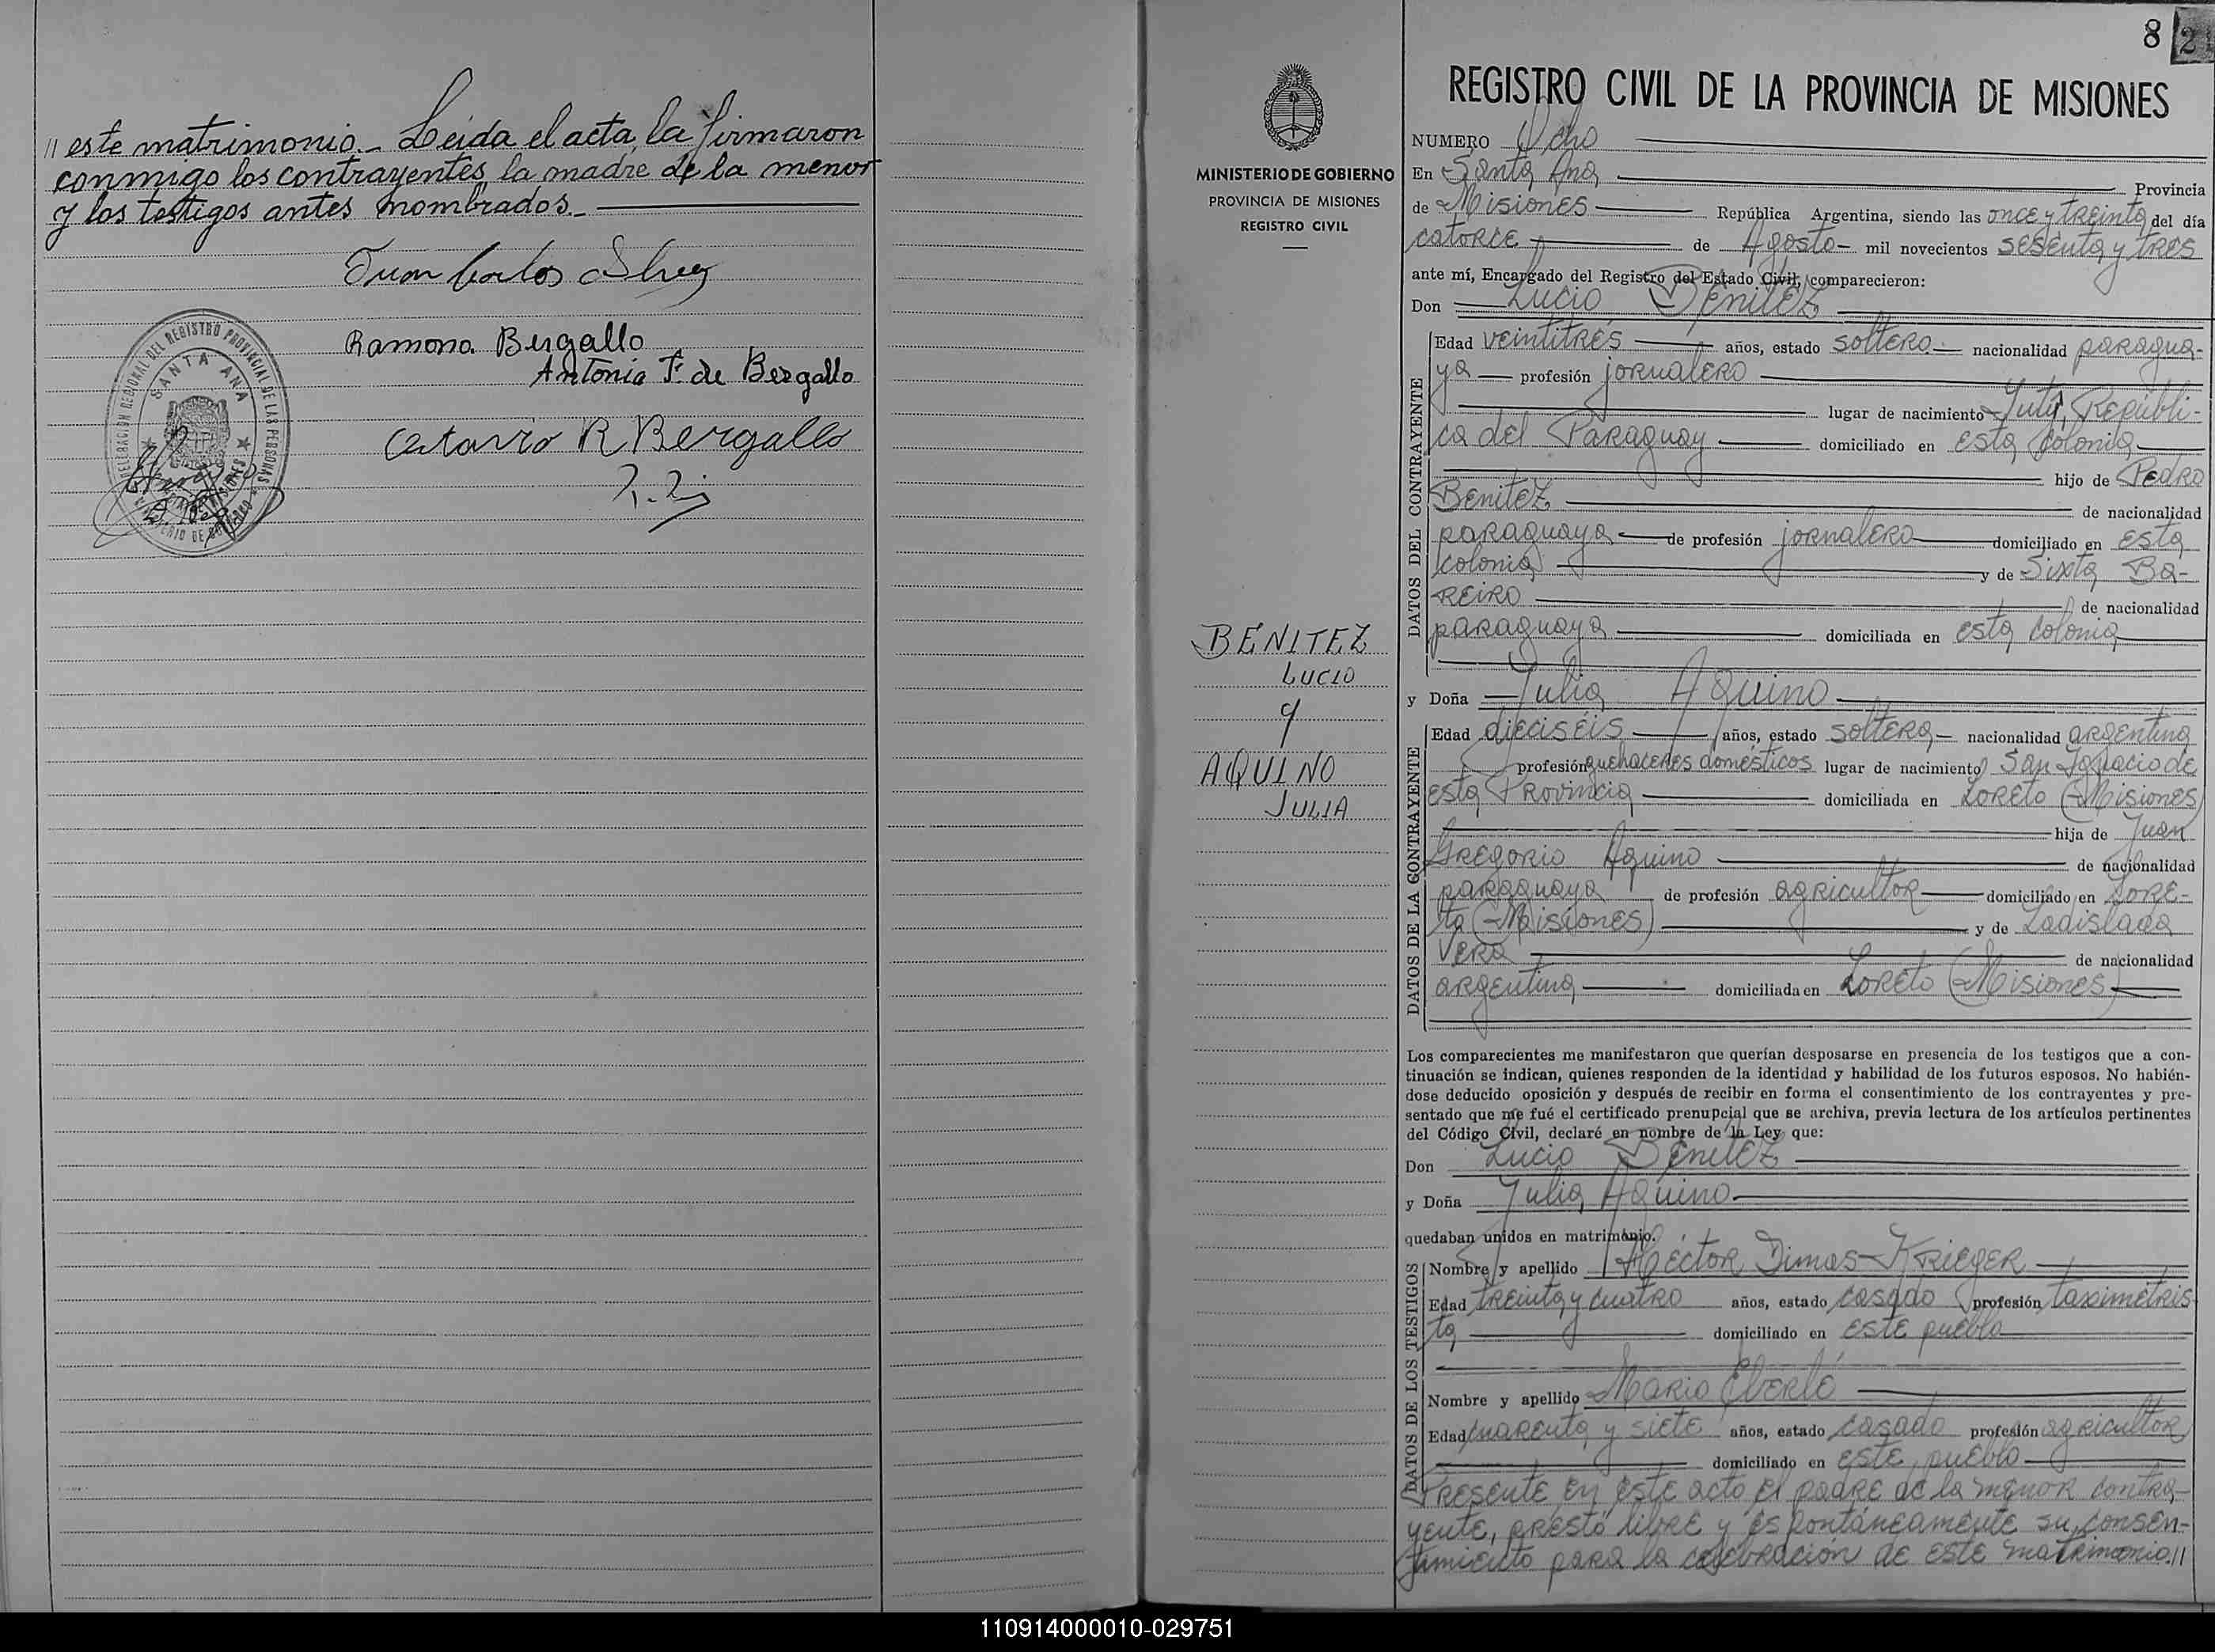 // este matrimonio.- Leida el acta, la firmaron
conmigo los contrayentes, la madre de la menor
y los testigos antes nombrados.-
Juan Carlos
Ramona Bergallo
Antonia F. de Bergallo
Octavio R Bergallo
DELEGACION REGIONAL DEL REGISTRO PROVINCIAL DE LAS PERSONAS
SANTA ANA
MISIONES
MINISTERIO DE GOBIERNO
MINISTERIO DE GOBIERNO
PROVINCIA DE MISIONES
REGISTRO CIVIL
BENITEZ
LUCIO
y
AQUINO
JULIA
8 2
REGISTRO CIVIL DE LA PROVINCIA DE MISIONES
NUMERO Ocho
En Santa Ana Provincia
de Misiones República Argentina, siendo las once y treinta del día
catorce de Agosto mil novecientos sesenta y tres
ante mí, Encargado del Registro del Estado Civil, comparecieron:
Don Lucio Benítez
DATOS DEL CONTRAYENTE
Edad veintitrés años, estado soltero nacionalidad paragua-
ya profesión jornalero
lugar de nacimiento Yuty, Repúbli-
ca del Paraguay domiciliado en esta Colonia
hijo de Pedro
Benítez de nacionalidad
paraguaya de profesión jornalero domiciliado en esta
colonia y de Sixta Ba-
reiro de nacionalidad
paraguaya domiciliada en esta colonia
y Doña Julia Aquino
DATOS DE LA CONTRAYENTE
Edad dieciséis años, estado soltera nacionalidad argentina
profesión quehaceres domésticos lugar de nacimiento San Ignacio de
esta Provincia domiciliada en Loreto (Misiones)
hija de Juan
Gregorio Aquino de nacionalidad
paraguaya de profesión agricultor domiciliado en Lore-
to (Misiones) y de Ladislada
Vera de nacionalidad
argentina domiciliada en Loreto (Misiones)
Los comparecientes me manifestaron que querían desposarse en presencia de los testigos que a con-
tinuación se indican, quienes responden de la identidad y habilidad de los futuros esposos. No habién-
dose deducido oposición y después de recibir en forma el consentimiento de los contrayentes y pre-
sentado que me fué el certificado prenupcial que se archiva, previa lectura de los artículos pertinentes
del Código Civil, declaré en nombre de la Ley que:
Don Lucio Benítez
y Doña Julia Aquino
quedaban unidos en matrimonio.
DATOS DE LOS TESTIGOS
Nombre y apellido Héctor Dimas Krieger
Edad treinta y cuatro años, estado casado profesión taximetris
ta domiciliado en este pueblo
Nombre y apellido Mario Eberlé
Edad cuarenta y siete años, estado casado profesión agricultor
domiciliado en este pueblo
Presente en este acto el padre de la menor contra-
yente, prestó libre y espontáneamente su consen-
timiento para la celebración de este matrimonio.//
110914000010-029751